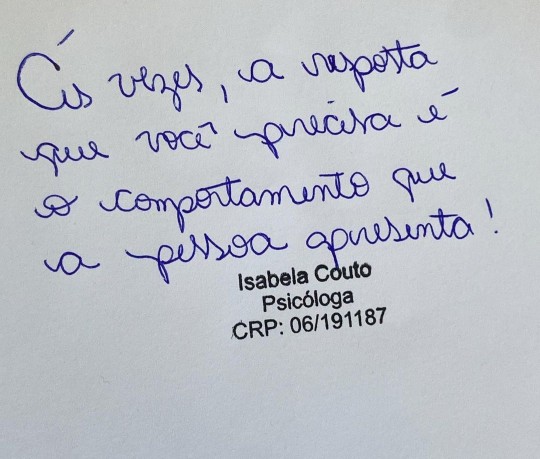 Às vezes, a resposta
que você precisa é
o comportamento que
a pessoa apresenta!
Isabela Couto
Psicóloga
CRP: 06/191187